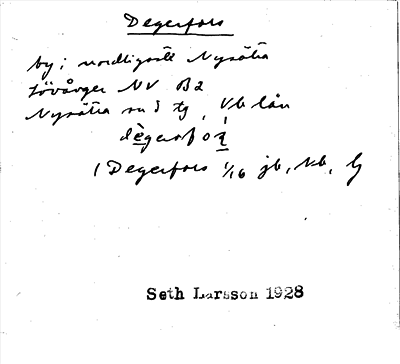 Degerfors
by i nordligaste Nysätra
Lövånger NV B2
Nysätra sn o tg, Vb län
dègərfoṣ
1 Degerfors 1/16 jb,
Seth Larsson 1928